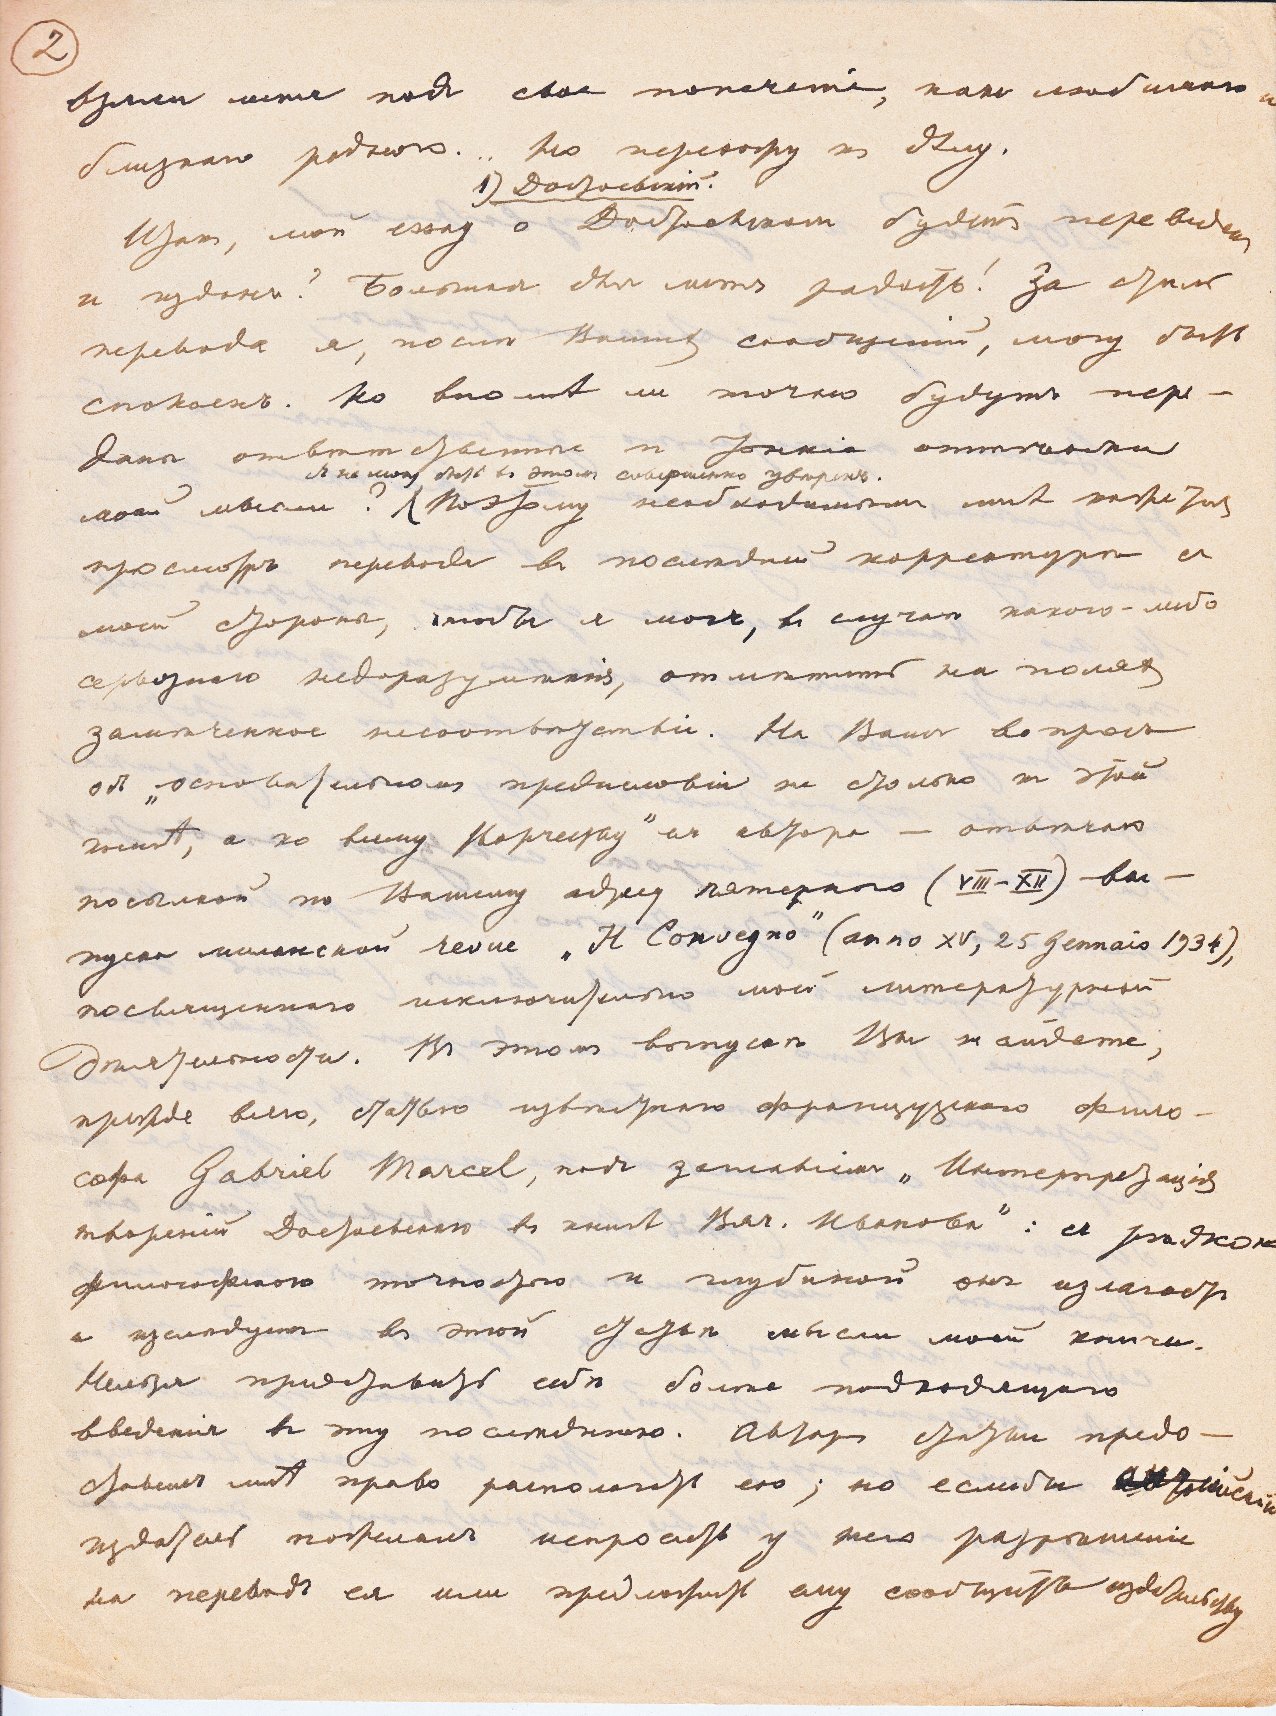 2
взяли меня подъ свое попеченіе, какъ любимаго и
близкаго родного... Но перехожу къ дѣлу.
1) Достоевскій.
Итакъ, мой essay о Достоевскомъ будетъ переведенъ
и изданъ? Большая для меня радость! За стиль
перевода я, послѣ Вашихъ сообщеній, могу быть
спокоенъ. Но вполнѣ ли точно будутъ пере-
даны отвѣтственные и тонкіе оттѣнки
Я не могу быть въ этомъ совершенно увѣренъ.
моей мысли? Поэтому необходимымъ мнѣ кажется
просмотръ перевода въ послѣдней корректурѣ съ
моей стороны, чтобы я могъ, въ случаѣ какого-либо
серьезнаго недоразумѣнія, отмѣтить на поляхъ
замѣченное несоотвѣтствіе. На Вашъ вопросъ
объ „основательномъ предисловіи не столько къ этой
книгѣ, а ко всему творчеству" ея автора — отвѣчаю
посылкой по Вашему адресу пятернаго (VIII–XII) вы-
пуска миланской revue „Il Convegno" (anno XV, 25 Gennaio 1934),
посвященнаго исключительно моей литературной
дѣятельности. Въ этомъ выпускѣ Вы найдете,
прежде всего, статью извѣстнаго французскаго фило-
софа Gabriel Marcel, подъ заглавіемъ „Интерпретація
твореній Достоевскаго въ книгѣ Вяч. Иванова": съ рѣдкою
философскою точностью и глубиной онъ излагаетъ
и изслѣдуетъ въ этой статьѣ мысли моей книги.
Нельзя представить себѣ болѣе подходящаго
введенія въ эту послѣднюю. Авторъ статьи предо-
ставилъ мнѣ право располагать ею; но еслибы англійскій
издатель пожелалъ испросить у него разрѣшеніе
на переводъ ея или предложить ему сообщить издательству